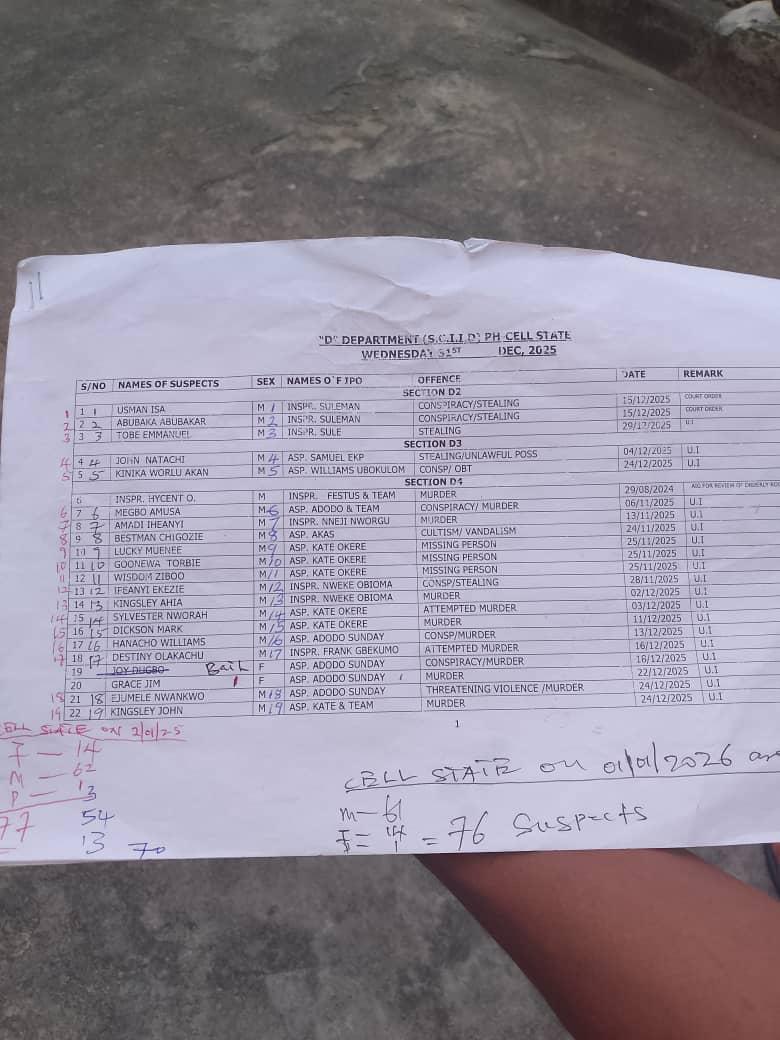 "D" DEPARTMENT (S.C.I.I.D) PH CELL STATE
WEDNESDAY 31ST DEC, 2025
S/NO NAMES OF SUSPECTS SEX NAMES O'F IPO OFFENCE DATE REMARK
SECTION D2
1 1 1 USMAN ISA M 1 INSPR. SULEMAN CONSPIRACY/STEALING 15/12/2025 COURT ORDER
2 2 2 ABUBAKA ABUBAKAR M 2 INSPR. SULEMAN CONSPIRACY/STEALING 15/12/2025 COURT ORDER
3 3 3 TOBE EMMANUEL M 3 INSPR. SULE STEALING 29/12/2025 U.I
SECTION D3
4 4 4 JOHN NATACHI M 4 ASP. SAMUEL EKP STEALING/UNLAWFUL POSS 04/12/2025 U.I
5 5 5 KINIKA WORLU AKAN M 5 ASP. WILLIAMS UBOKULOM CONSP/ OBT 24/12/2025 U.I
SECTION D4
6 INSPR. HYCENT O. M INSPR. FESTUS & TEAM MURDER 29/08/2024 AIG FOR REVIEW OF ORDERLY
6 7 6 MEGBO AMUSA M 6 ASP. ADODO & TEAM CONSPIRACY/ MURDER 06/11/2025 U.I
7 8 7 AMADI IHEANYI M 7 INSPR. NNEJI NWORGU MURDER 13/11/2025 U.I
8 9 8 BESTMAN CHIGOZIE M 8 ASP. AKAS CULTISM/ VANDALISM 24/11/2025 U.I
9 10 9 LUCKY MUENEE M 9 ASP. KATE OKERE MISSING PERSON 25/11/2025 U.I
10 11 10 GOONEWA TORBIE M 10 ASP. KATE OKERE MISSING PERSON 25/11/2025 U.I
11 12 11 WISDOM ZIBOO M 11 ASP. KATE OKERE MISSING PERSON 25/11/2025 U.I
12 13 12 IFEANYI EKEZIE M 12 INSPR. NWEKE OBIOMA CONSP/STEALING 28/11/2025 U.I
13 14 13 KINGSLEY AHIA M 13 INSPR. NWEKE OBIOMA MURDER 02/12/2025 U.I
14 15 14 SYLVESTER NWORAH M 14 ASP. KATE OKERE ATTEMPTED MURDER 03/12/2025 U.I
15 16 15 DICKSON MARK M 15 ASP. KATE OKERE MURDER 11/12/2025 U.I
16 17 16 HANACHO WILLIAMS M 16 ASP. ADODO SUNDAY CONSP/MURDER 13/12/2025 U.I
17 18 17 DESTINY OLAKACHU M 17 INSPR. FRANK GBEKUMO ATTEMPTED MURDER 16/12/2025 U.I
19 JOY DUGBO Bail F ASP. ADODO SUNDAY CONSPIRACY/MURDER 16/12/2025 U.I
20 GRACE JIM 1 F ASP. ADODO SUNDAY MURDER 22/12/2025 U.I
18 21 18 EJUMELE NWANKWO M 18 ASP. ADODO SUNDAY THREATENING VIOLENCE /MURDER 24/12/2025 U.I
19 22 19 KINGSLEY JOHN M 19 ASP. KATE & TEAM MURDER 24/12/2025 U.I
1
CELL STATE ON 2/01/25
F — 14
M — 62
P — 13
77
54
13 70
CELL STATE on 01/01/2026 are
m - 61
F = 14
1
= 76 Suspects